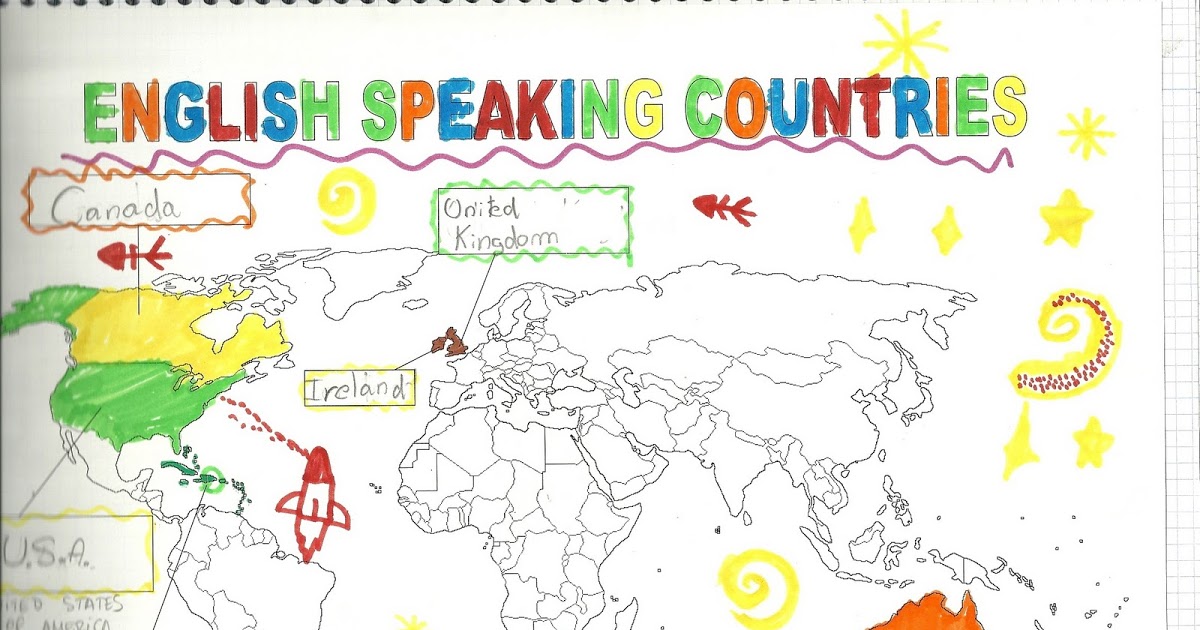 ENGLISH SPEAKING COUNTRIES
Canada
United
Kingdom
Ireland
U.S.A.
NITED STATES
OF AMERICA